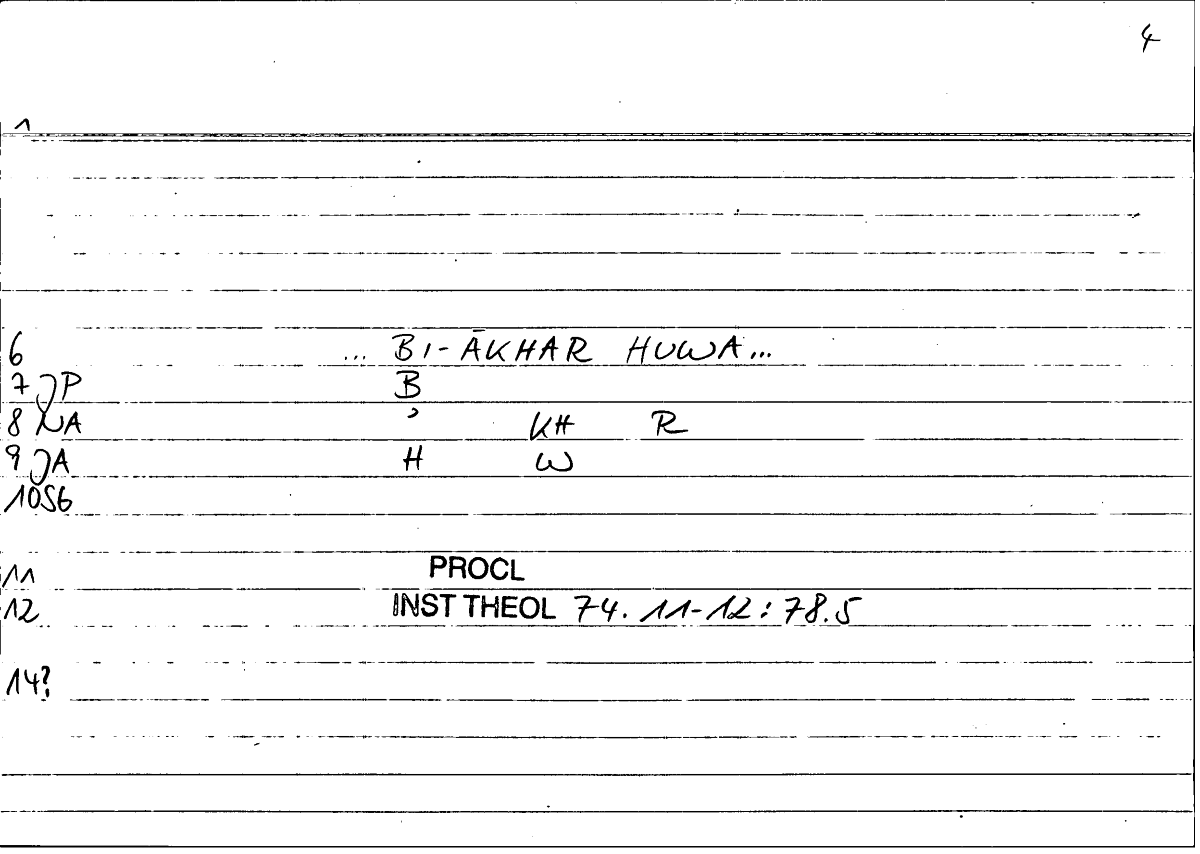 4
1
6 ... BI-ĀKHAR HUWA...
7 JP B
8 NA ʾ KH R
9 JA H W
10SG
11 PROCL
12 INST THEOL 74. 11-12: 78.5
14?